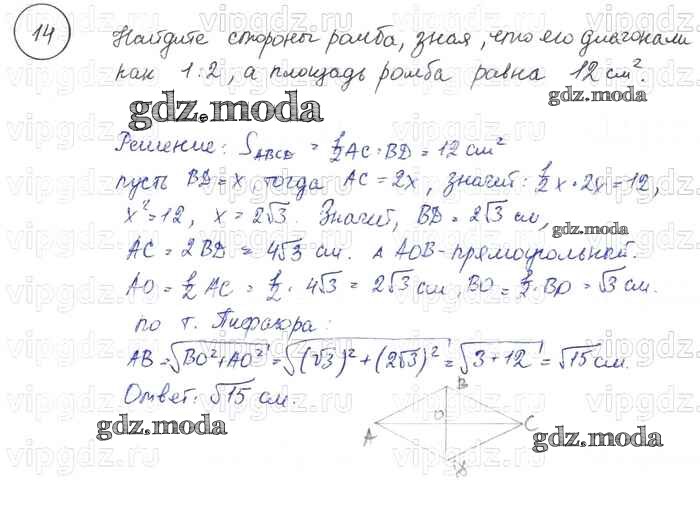 14
Найдите стороны ромба, зная, что его диагонали
как 1:2, а площадь ромба равна 12 см².
gdz.moda
gdz.moda
Решение: S_ABCD = 1/2 AC · BD = 12 см²
пусть BD = x, тогда AC = 2x, значит: 1/2 x · 2x = 12,
x² = 12, x = 2√3. Значит, BD = 2√3 см,
AC = 2BD = 4√3 см. △ AOB - прямоугольный.
AO = 1/2 AC = 1/2 · 4√3 = 2√3 см, BO = 1/2 · BD = √3 см.
по т. Пифагора:
AB = √BO² + AO² = √(√3)² + (2√3)² = √3 + 12 = √15 см.
Ответ: √15 см.
B
O
A
C
gdz.moda
gdz.moda
gdz.moda
vipgdz.ru